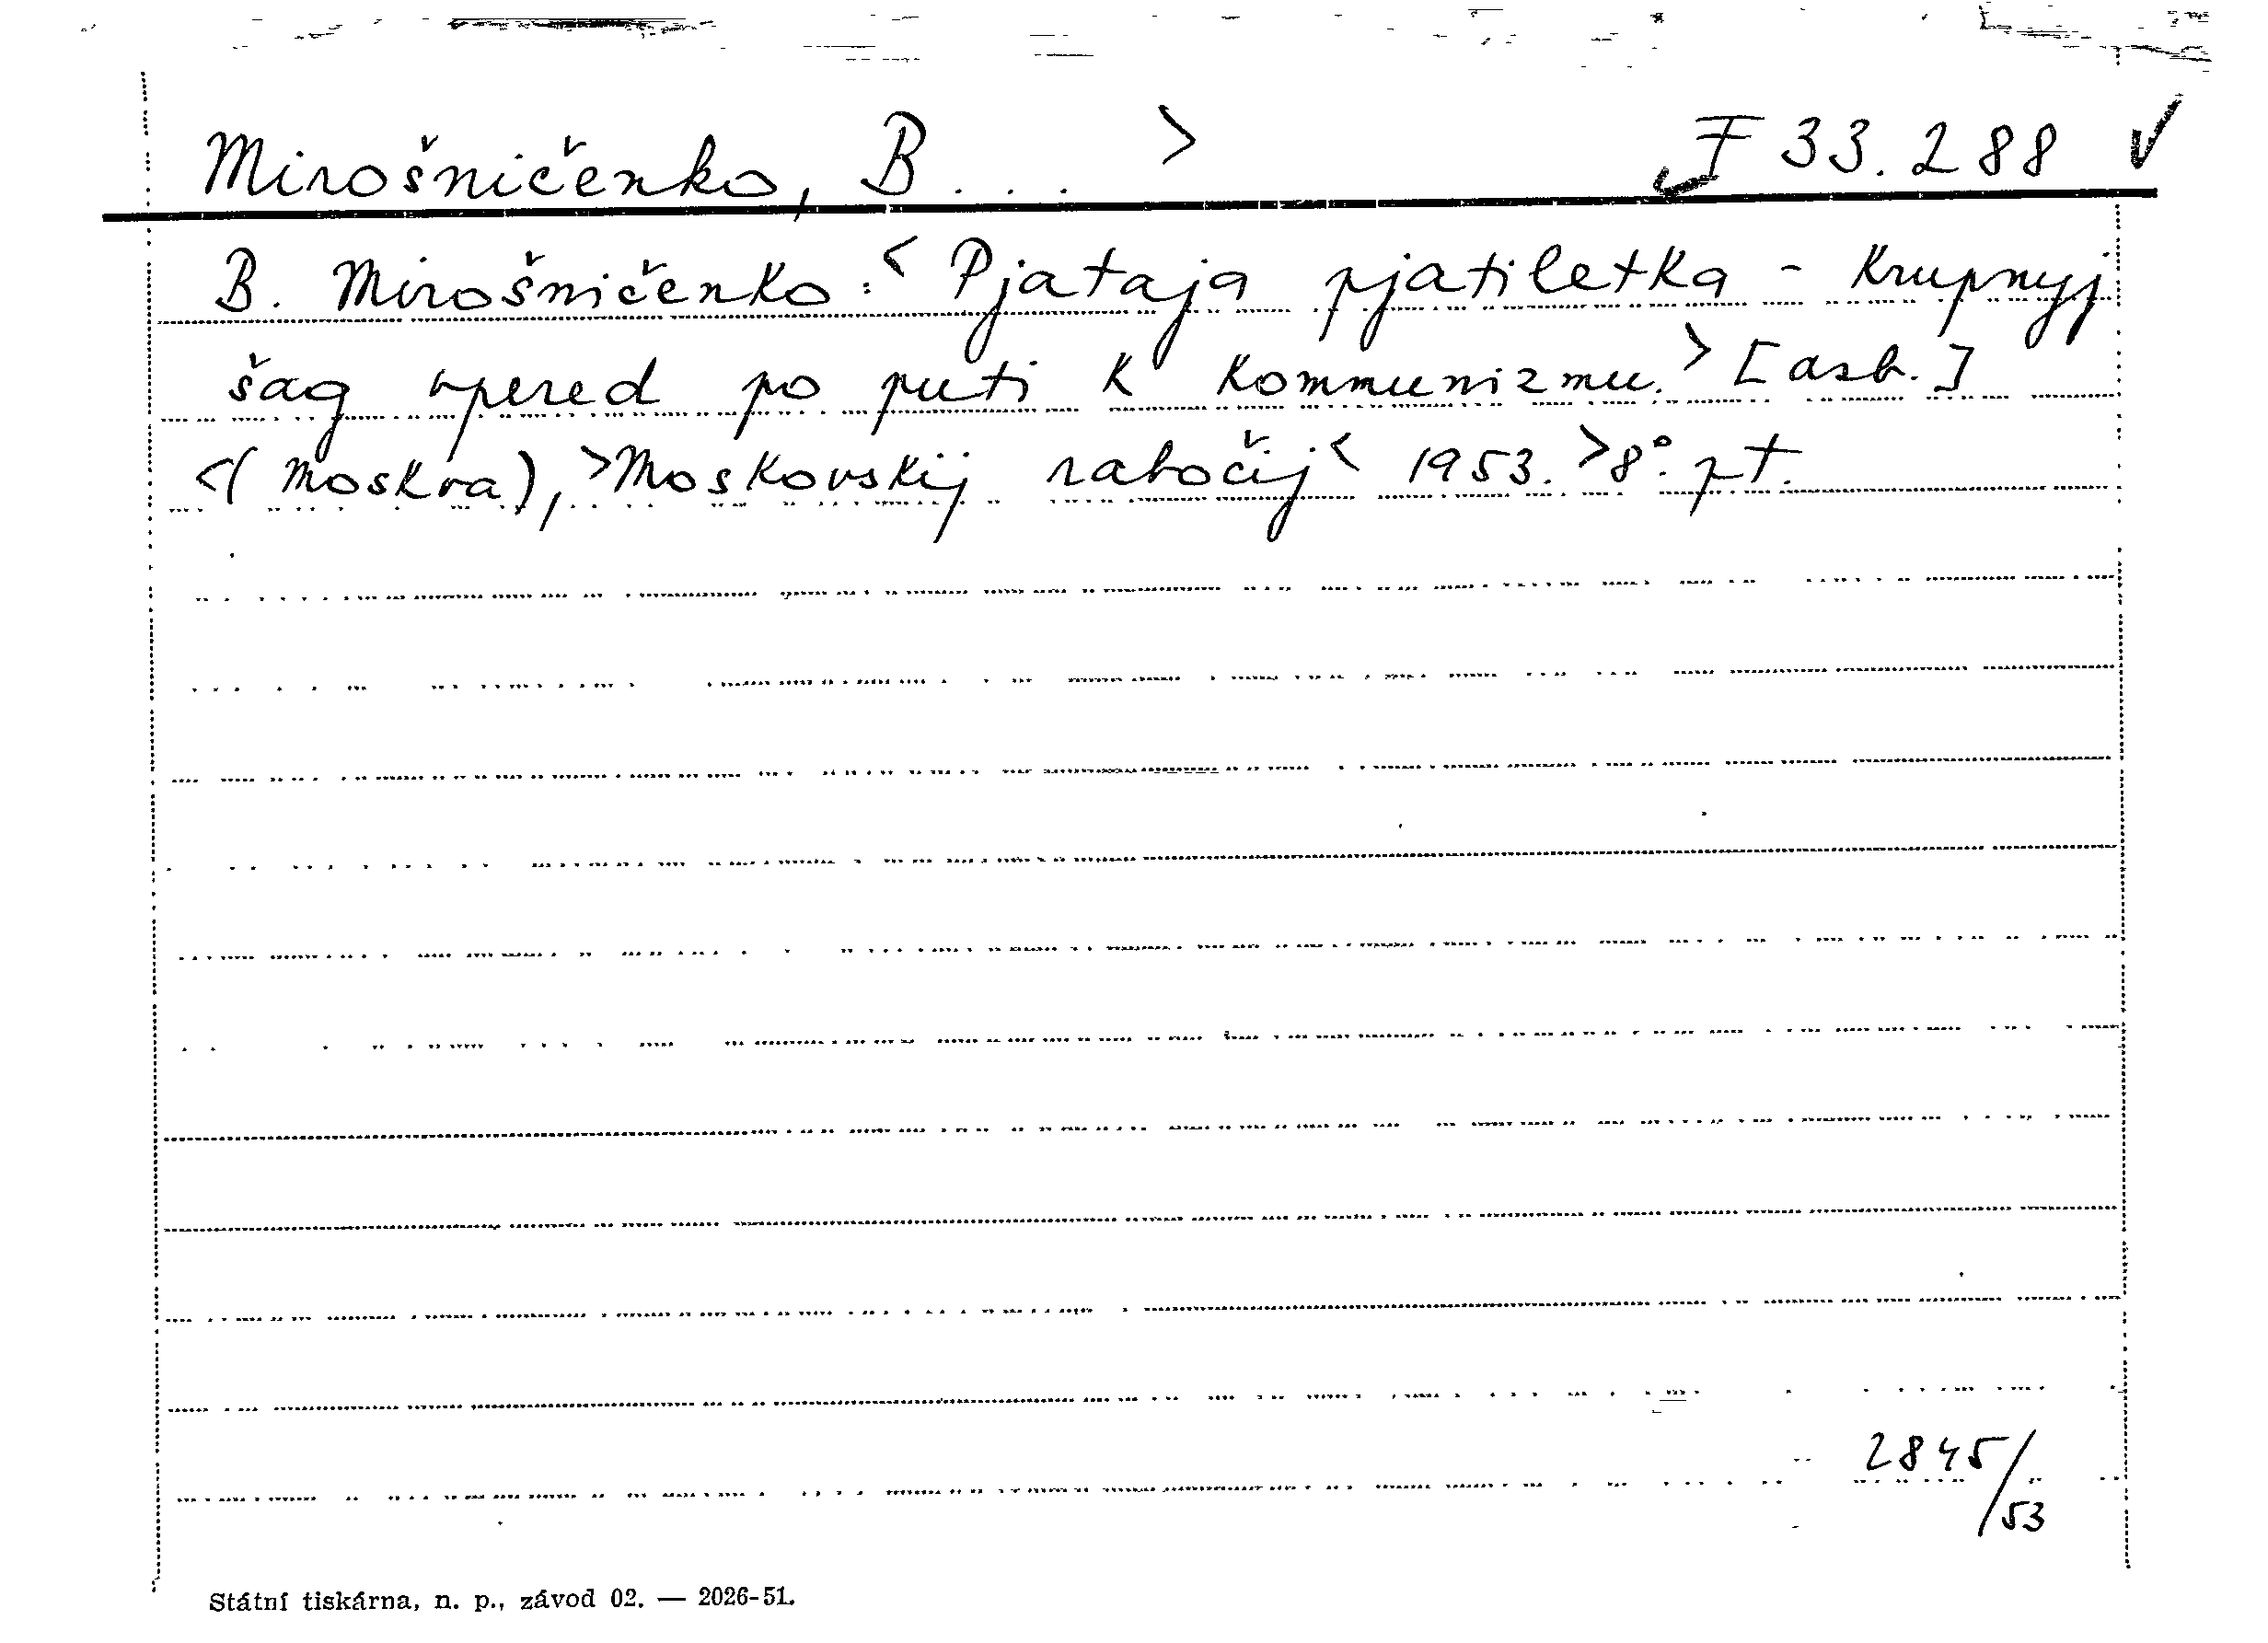 Mirošničenko, B... > F 33.288 ✓
B. Mirošničenko: < Pjataja pjatiletka - Krupnyj
šag vpered po puti k kommunizmu. > [asb.]
<( Moskva), > Moskovskij rabočij < 1953. > 8°. pt.
2845/
53
Státní tiskárna, n. p., závod 02. — 2026-51.